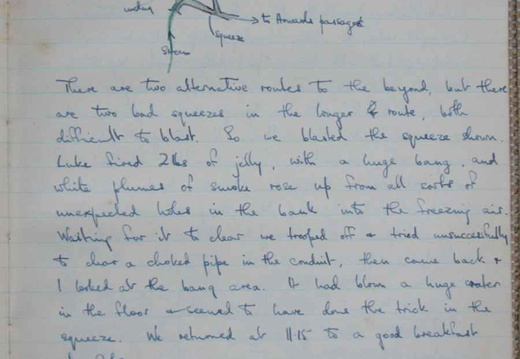 to Amarada passages
squeeze
Stream
There are two alternative routes to the beyond, but there
are two bad squeezes in the longer route, both
difficult to blast. So we blasted the squeeze shown.
Luke fired 2lbs of jelly, with a huge bang, and
white plumes of smoke rose up from all sorts of
unexpected holes in the bank into the freezing air.
Waiting for it to clear we trooped off & tried unsuccessfully
to clear a choked pipe in the conduit, then came back &
I looked at the bang area. It had blown a huge crater
in the floor & seemed to have done the trick in the
squeeze. We returned at 11.15 to a good breakfast